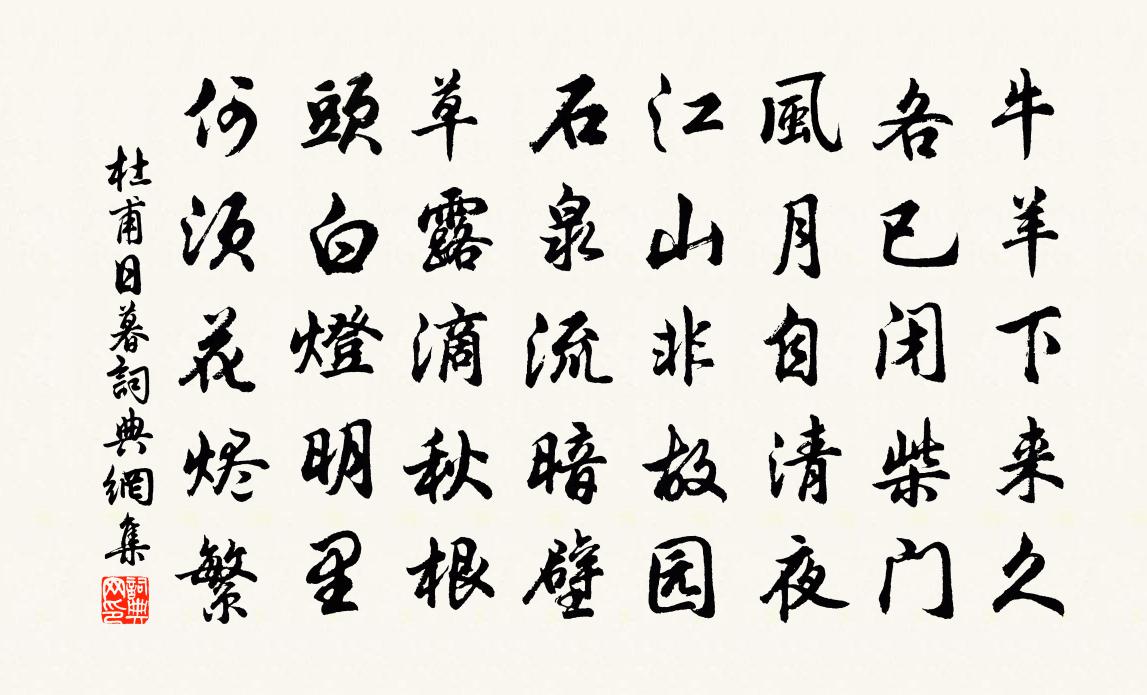 牛羊下来久
各已闭柴门
風月自清夜
江山非故园
石泉流暗壁
草露滴秋根
頭白燈明里
何须花烬繁
杜甫日暮詞典網集
詞典网印